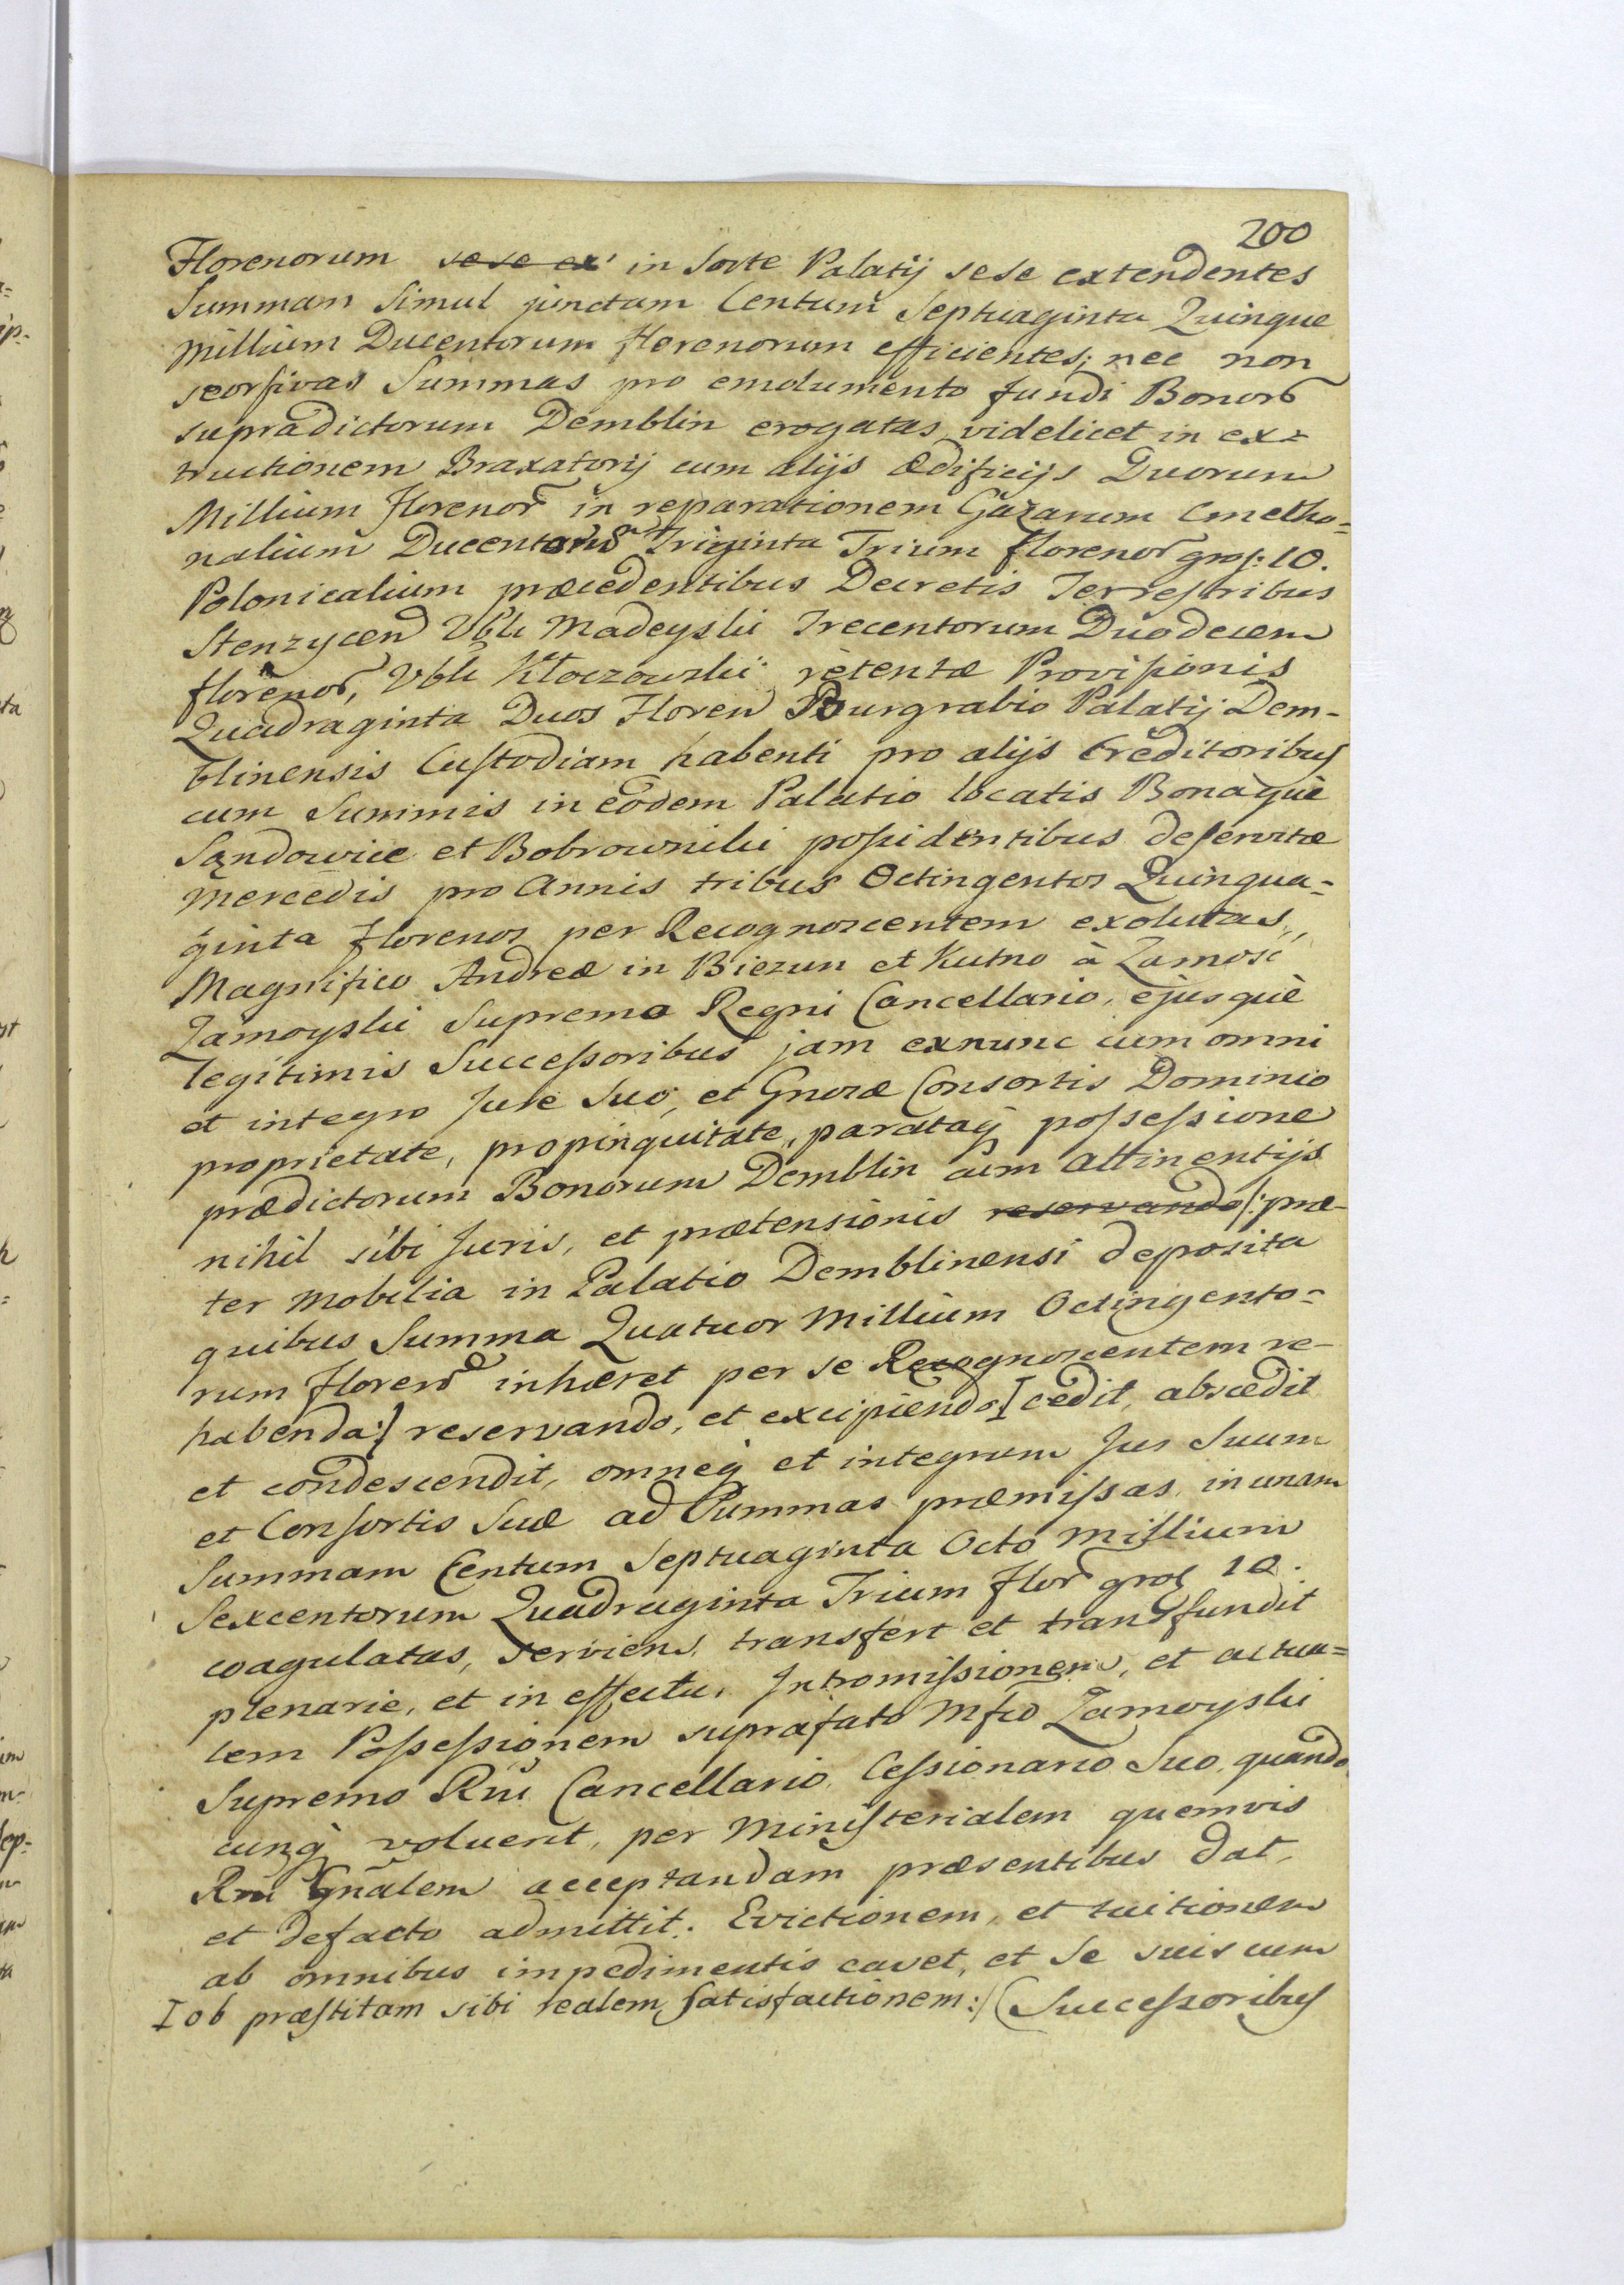 200
Florenorum sese ex in Sorte Palatij sese extendentes
Summam Simul junctam Centum Septuaginta Quinque
Millium Ducentorum florenorum efficientes; nec non
seorsivas Summas pro emolumento fundi Bonor
supradictorum Demblin erogatas, videlicet in ex=
tructionem Braxatorij cum alijs ædificijs Duorum
Millium florenor in reparationem Gazarum Cmetho=
nalium Ducentorum Triginta Trium florenor gros: 10.
Polonicalium præcedentibus Decretis Terrestribus
Stenzycen Vbli Madeyski Trecentorum Duodecem
florenor, Vbli Kłoczowski retentæ Provisionis
Quadraginta Duos Floren Bourgrabio Palatij Dem-
blinensis Custodiam habenti pro alijs Creditoribus
cum Summis in eodem Palatio locatis Bonaquè
Sędowice et Bobrowniki possidentibus deservitæ
Mercedis pro Annis tribus Octingentos Quinqua=
ginta florenos per Recognoscentem exolutas,
Magnifico Andreæ in Biezun et Kutno à Zamosc
Zamoyski Supremo Regni Cancellario, ejusquè
legitimis Successoribus jam exnunc cum omni
et integro Jure Suo, et Gnosæ Consortis Dominio
proprietate, propinquitate, parataq possessione
prædictorum Bonorum Demblin cum attinentijs
nihil sibi Juris, et prætensionis reservando /: præ-
ter Mobilia in Palatio Demblinensi deposita
quibus Summa Quatuor Millium Octingento=
rum floren inhæret per se Recognoscentem re-
habenda:/ reservando, et excipiendo I cedit, abscedit
et condescendit, omneq et integrum Jus Suum
et Consortis Suæ ad Summas præmissas, in unam
Summam Centum Septuaginta Octo Millium
Sexcentorum Quadraginta Trium flor gros 10.
coagulatas, serviens, transfert et transfundit
plenarie, et in effectu. Intromissionem, et actua=
lem Possessionem suprafato Mfco Zamoyski
Supremo Rni Cancellario, Cessionario Suo, quando
cunq voluerit, per Ministerialem quemvis
Rni Gnalem acceptandam præsentibus dat,
et defacto admittit. Evictionem, et tuitionem
ab omnibus impedimentis cavet, et Se suis cum
I ob præstitam sibi realem satisfactionem:/ (Successoribus